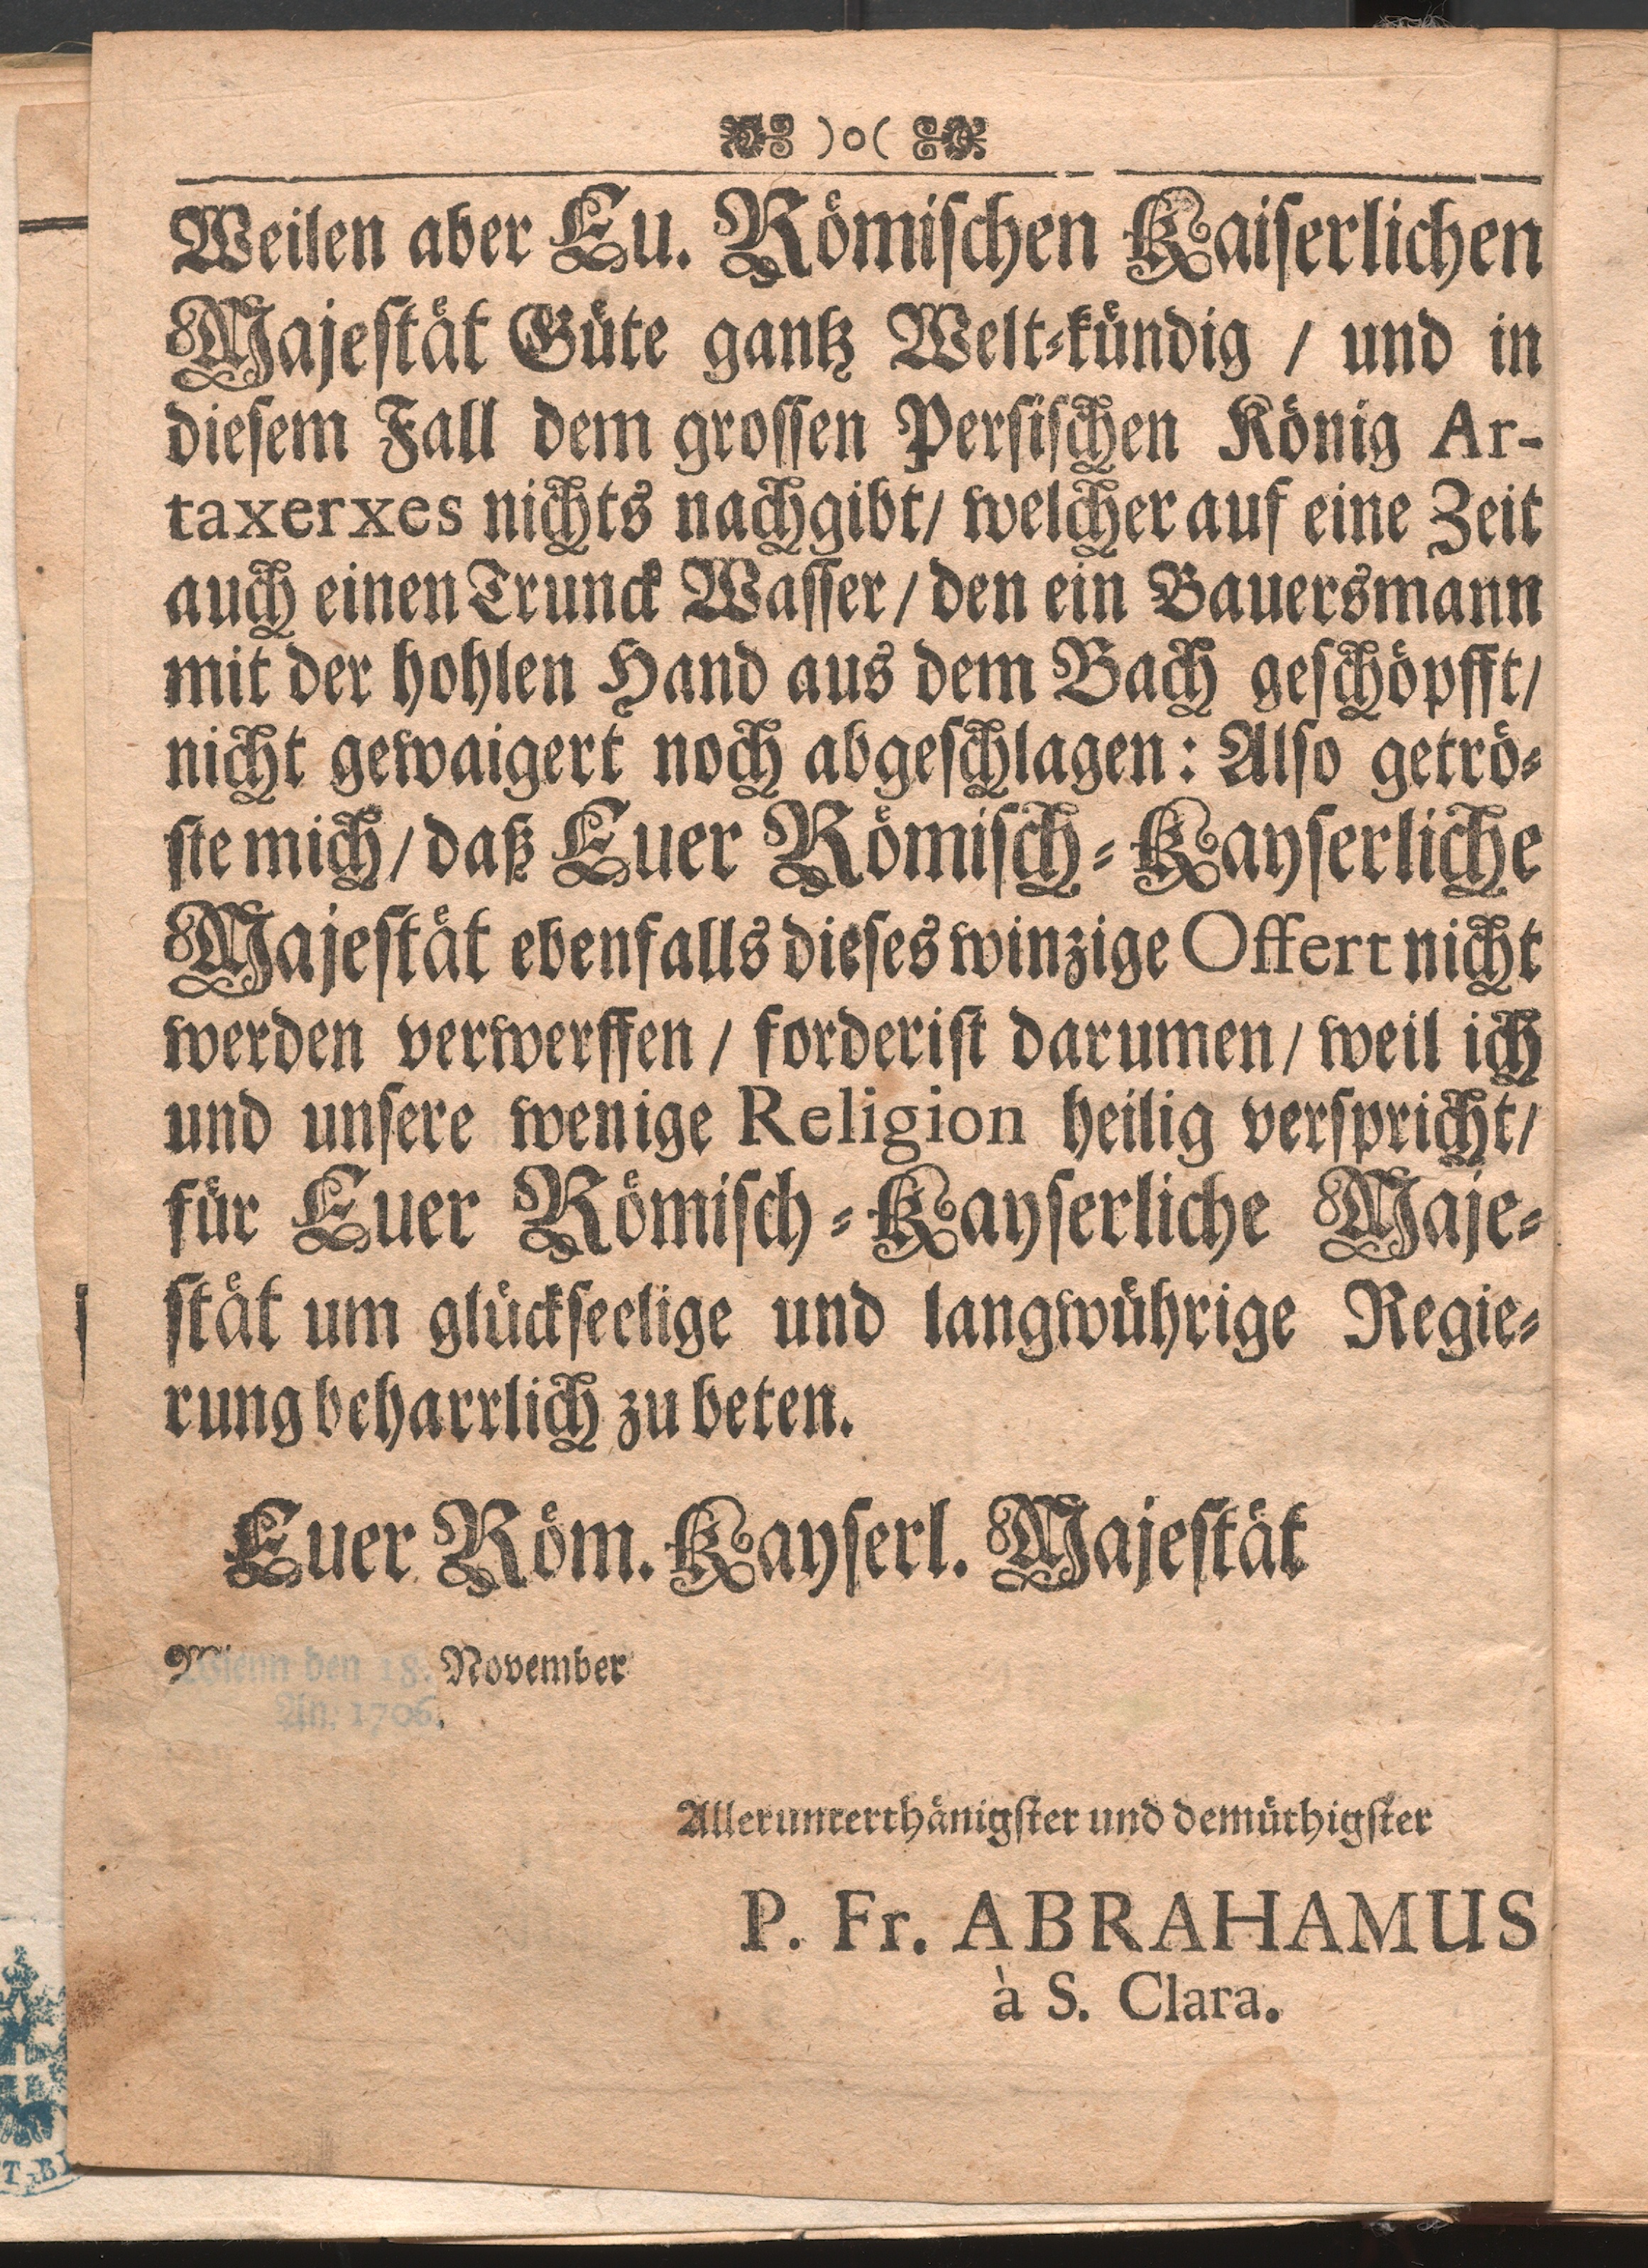 )o(
Weilen aber Eu. Römischen Kaiserlichen
Majestät Güte gantz Welt-kündig / und in
diesem Fall dem grossen Persischen König Ar-
taxerxes nichts nachgibt/ welcher auf eine Zeit
auch einen Trunck Wasser / den ein Bauersmann
mit der hohlen Hand aus dem Bach geschöpfft/
nicht gewaigert noch abgeschlagen: Also getrö-
ste mich / daß Euer Römisch-Kayserliche
Majestät ebenfalls dieses winzige Offert nicht
werden verwerffen / forderist darumen / weil ich
und unsere wenige Religion heilig verspricht/
für Euer Römisch-Kayserliche Maje-
stät um glückseelige und langwührige Regie-
rung beharrlich zu beten.
Euer Röm. Kayserl. Majestät
Wienn den 18. November
An. 1706.
Allerunterthänigster und demüthigster
P. Fr. ABRAHAMUS
à S. Clara.